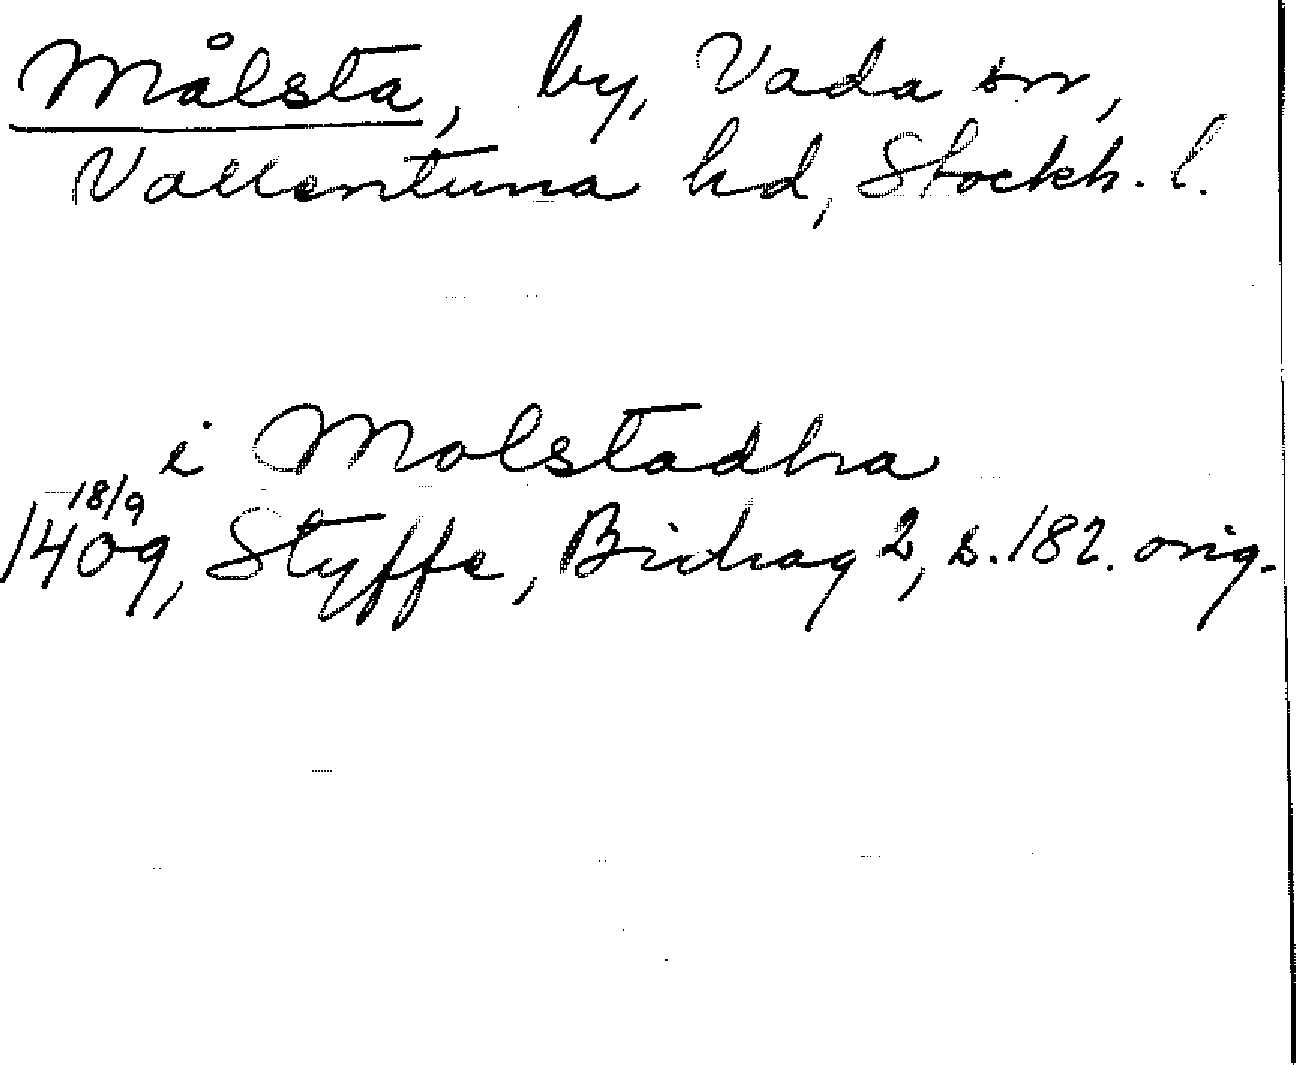 Målsta, by, Vada sn,
Vallentuna hd, Stockh. l.
i Molstadha
18/9
1409, Styffe, Bidrag 2, s. 182. orig.